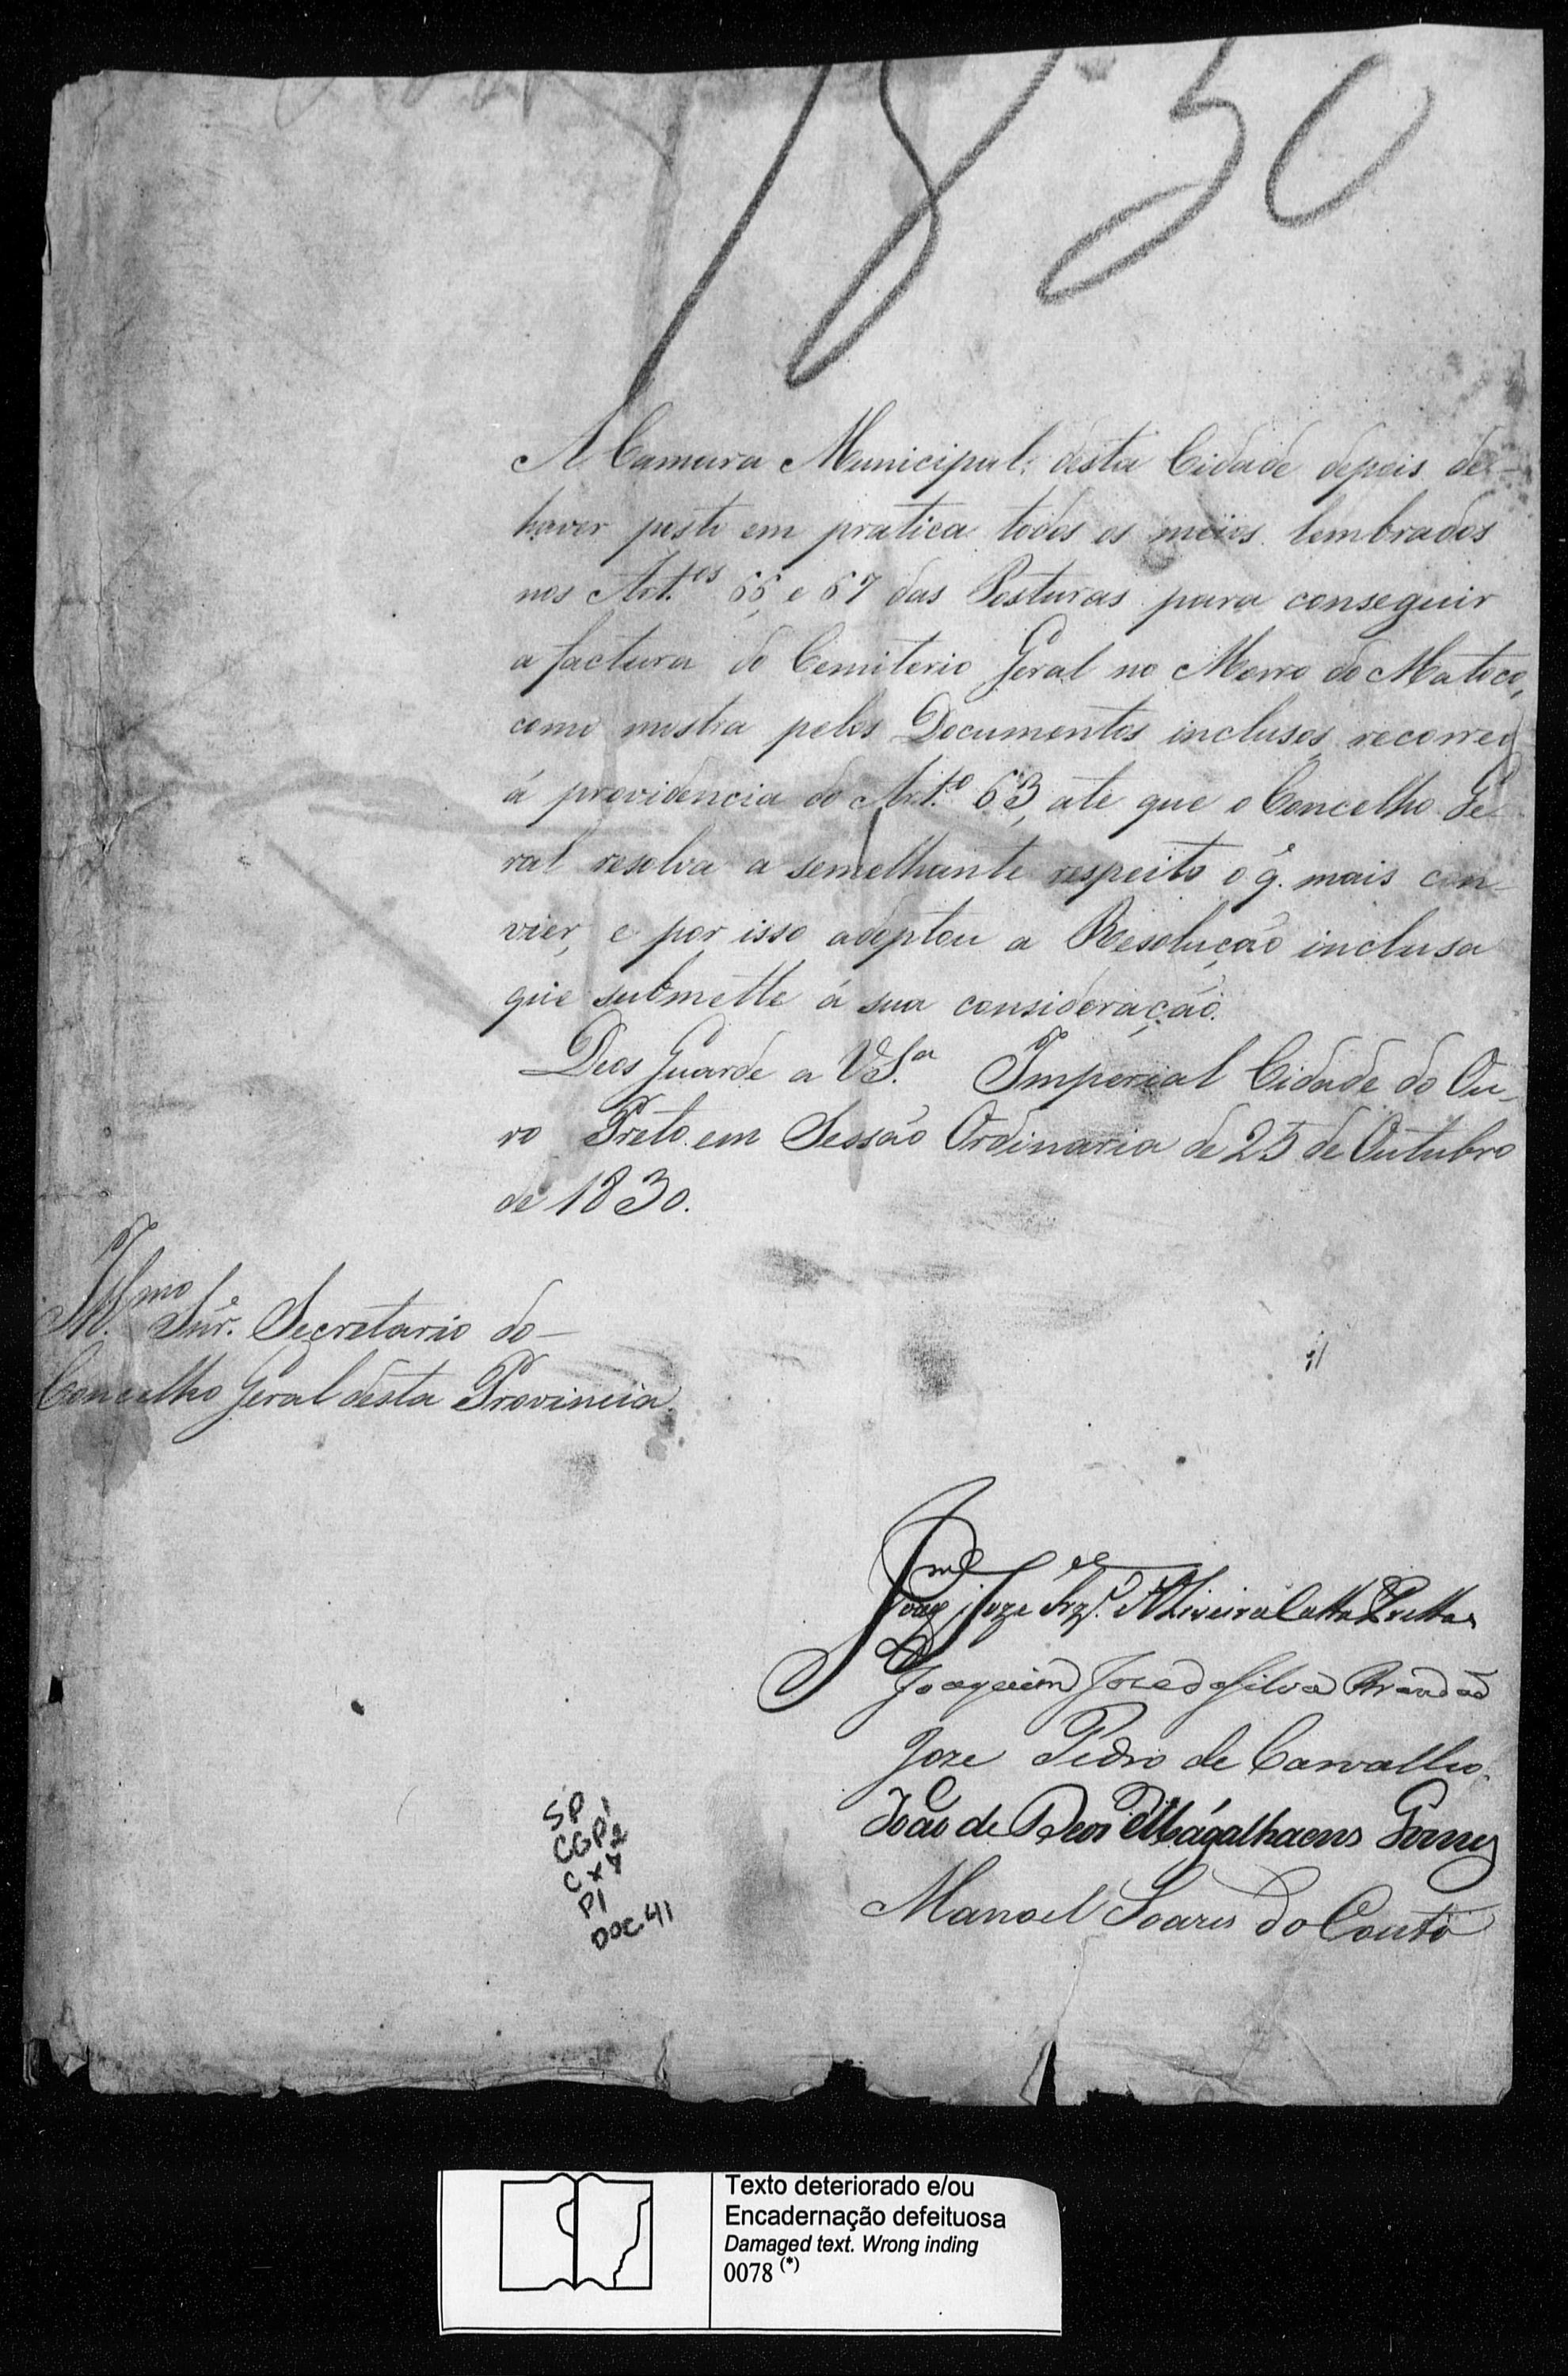 1830
A Camara Municipal desta Cidade depois de
haver posto em pratica todos os meios lembrados
nos Art.os 66, e 67 das Posturas para conseguir
a factura do Cemiterio Geral no Morro do
como mostra pelos Documentos inclusos, recorreo
á providencia do Art.o 63, ate que o Concelho Ge-
ral resolva a semelhante respeito o q. mais con-
vier, e por isso adoptou a Resolução inclusa
que submette á sua consideração.
Deos Guarde a V.S.a Imperial Cidade do Ou-
ro Preto em Sessão Ordinaria de 25 de Outubro
de 1830.
Ill.mo Snr. Secretario do
Concelho Geral desta Provincia.
Joaq.m Joze d'Oliveira Catta Pretta
Joaquim Joze da Silva Brandão
Joze Pedro de Carvalho.
João de Deos Magalhaens Gomes
Manoel Soares do Couto
SP
CGP1
CX
P1
DOC.41
Texto deteriorado e/ou
Encadernação defeituosa
Damaged text. Wrong inding
0078 (*)